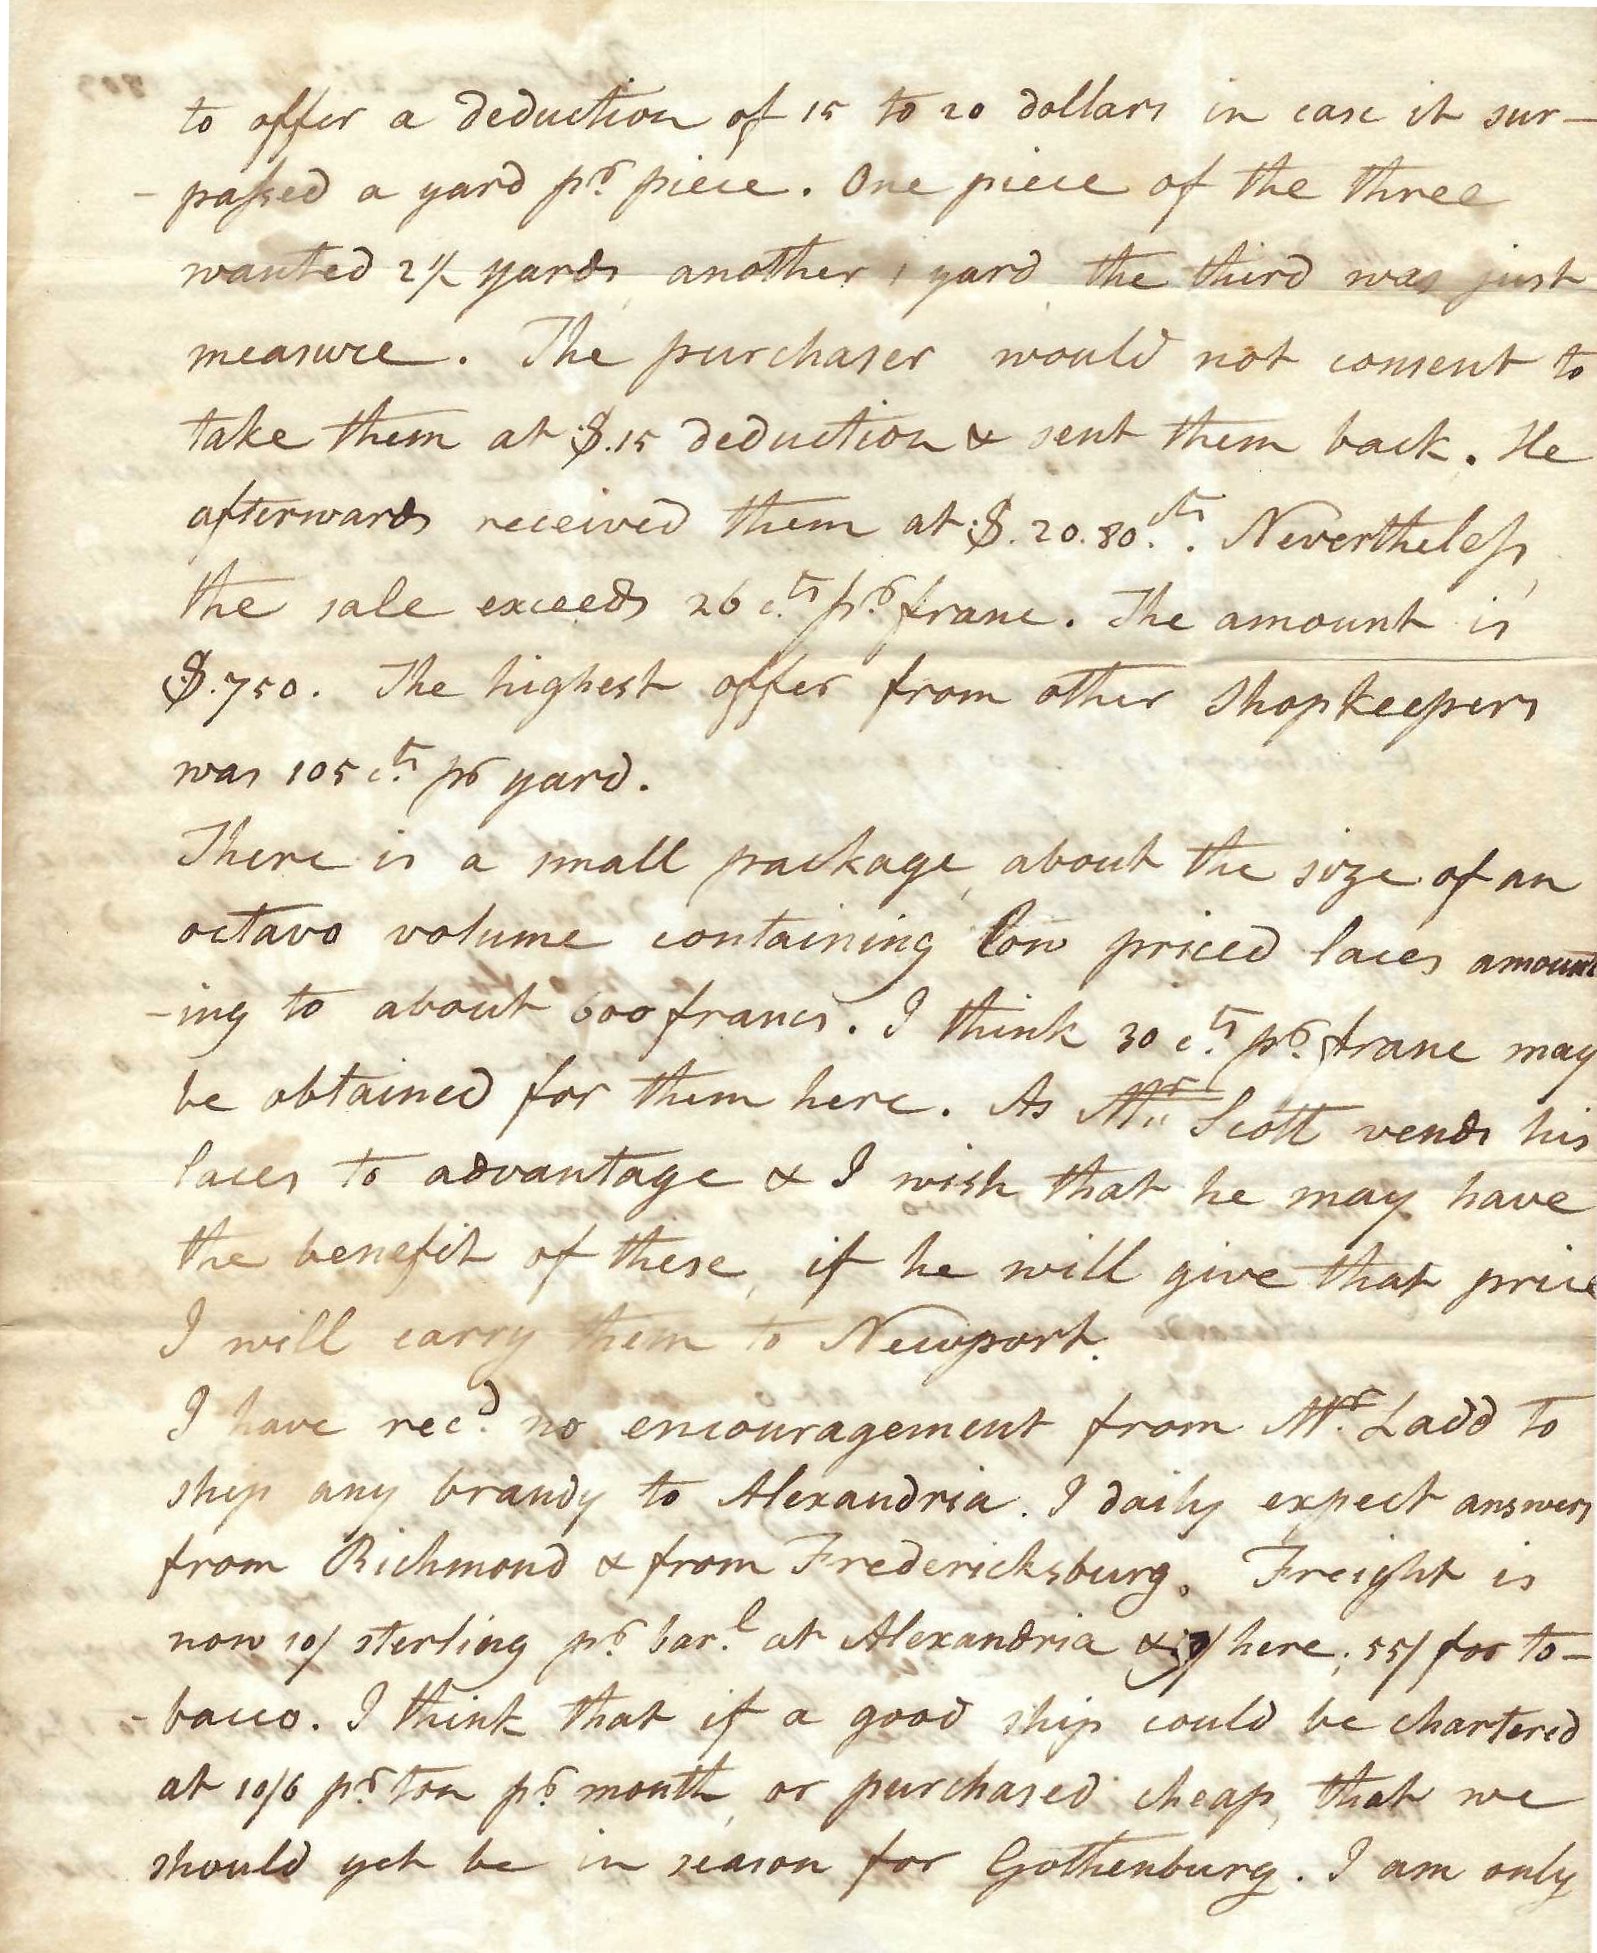 to offer a deduction of 15 to 20 dollars in case it sur-
-passed a yard pr. piece. One piece of the three
wanted 2½ yards, another 1 yard, the third was just
measure. The purchaser would not consent to
take them at $.15 deduction & sent them back. He
afterwards received them at $.20.80.cts. Nevertheless,
the sale exceeds 26 cts. pr. franc. The amount is
$.750. The highest offer from other shopkeepers
was 105 cts. pr yard.
There is a small package, about the size of an
octavo volume containing low priced laces amount
-ing to about 600 francs. I think 30 cts. pr. franc may
be obtained for them here. As Mr. Scott vends his
laces to advantage & I wish that he may have
the benefit of these, if he will give that price
I will carry them to Newport.
I have recd. no encouragement from Mr. Ladd to
ship any brandy to Alexandria. I daily expect answers
from Richmond & from Fredericksburg. Freight is
now 10/ sterling pr. barl. at Alexandria & here; 55/ for to-
-bacco. I think that if a good ship could be chartered
at 10/6 pr. ton pr. month, or purchased cheap, that we
should yet be in season for Gothenburg. I am only